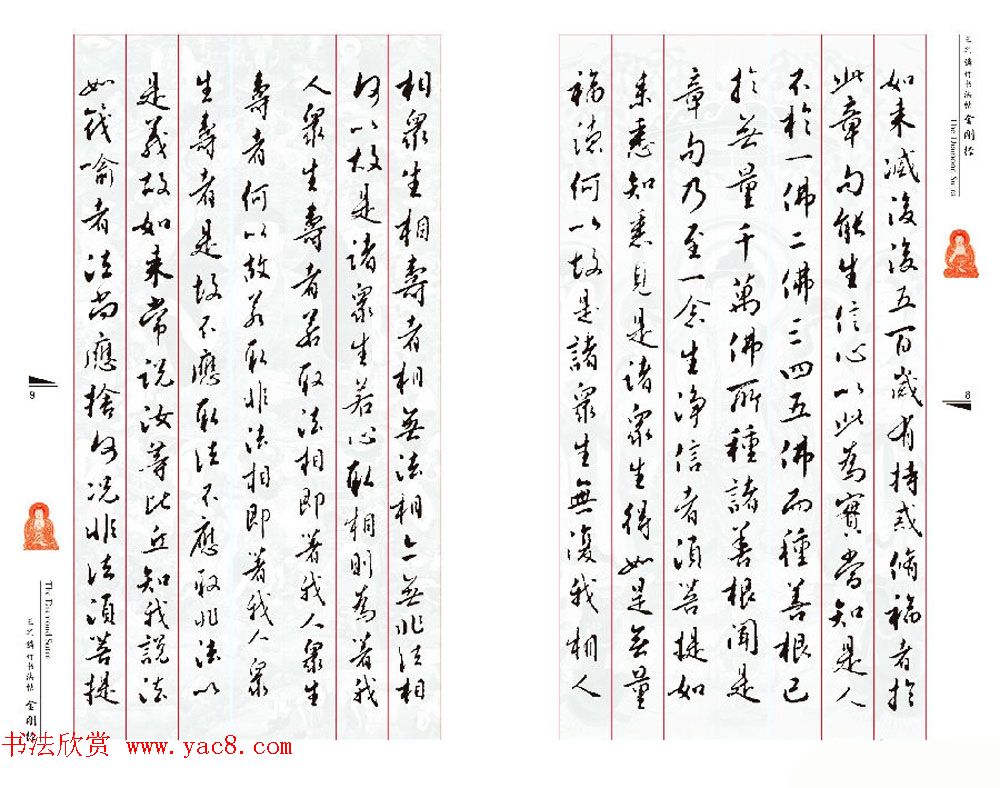 书法帖 金刚经
The Diamond Sutra
8
如来滅後後五百歲有持戒脩福者於
此章句能生信心以此為實當知是人
不於一佛二佛三四五佛而種善根已
於無量千萬佛所種諸善根聞是
章句乃至一念生淨信者須菩提如
来悉知悉見是諸眾生得如是無量
福德何以故是諸眾生無復我相人
相眾生相壽者相無法相亦無非法相
何以故是諸眾生若心取相則為著我
人眾生壽者若取法相即著我人眾生
壽者何以故若取非法相即著我人眾
生壽者是故不應取法不應取非法以
是義故如来常說汝等比丘知我說法
如筏喻者法尚應捨何況非法須菩提
9
The Diamond Sutra
书法帖 金刚经
书法欣赏 www.yac8.com